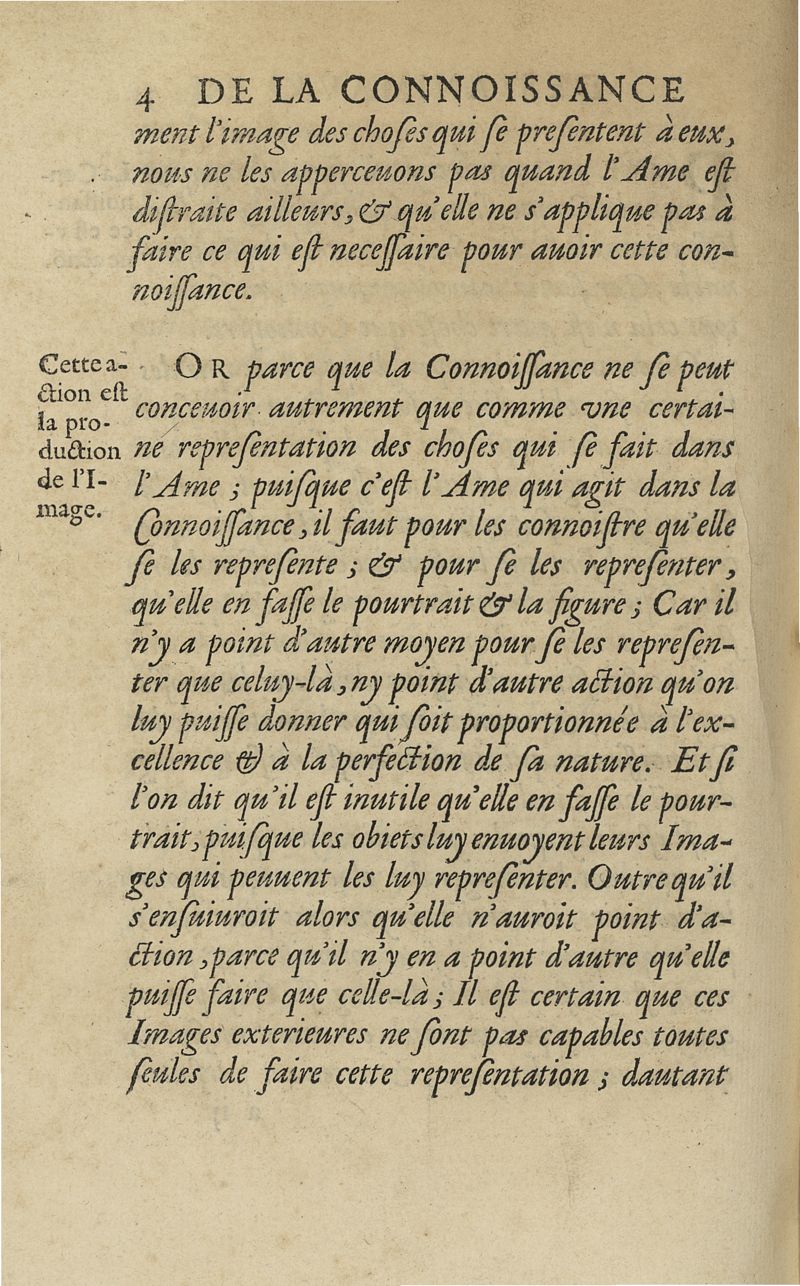 4 DE LA CONNOISSANCE
ment l'image des choſes qui ſe preſentent à eux,
nous ne les apperceuons pas quand l'Ame eſt
diſtraite ailleurs, & qu'elle ne s'applique pas à
faire ce qui eſt neceſſaire pour auoir cette con-
noiſſance.
Cette a-
ction eſt
la pro-
duction
de l'I-
mage.
OR parce que la Connoiſſance ne ſe peut
conceuoir autrement que comme vne certai-
ne repreſentation des choſes qui ſe fait dans
l'Ame ; puiſque c'eſt l'Ame qui agit dans la
Connoiſſance, il faut pour les connoiſtre qu'elle
ſe les repreſente ; & pour ſe les repreſenter,
qu'elle en faſſe le pourtrait & la figure ; Car il
n'y a point d'autre moyen pour ſe les repreſen-
ter que celuy-là, ny point d'autre action qu'on
luy puiſſe donner qui ſoit proportionnée à l'ex-
cellence & à la perfection de ſa nature. Et ſi
l'on dit qu'il eſt inutile qu'elle en faſſe le pour-
trait, puiſque les obiets luy enuoyent leurs Ima-
ges qui peuuent les luy repreſenter. Outre qu'il
s'enſuiuroit alors qu'elle n'auroit point d'a-
ction, parce qu'il n'y en a point d'autre qu'elle
puiſſe faire que celle-là ; Il eſt certain que ces
Images exterieures ne ſont pas capables toutes
ſeules de faire cette repreſentation ; dautant